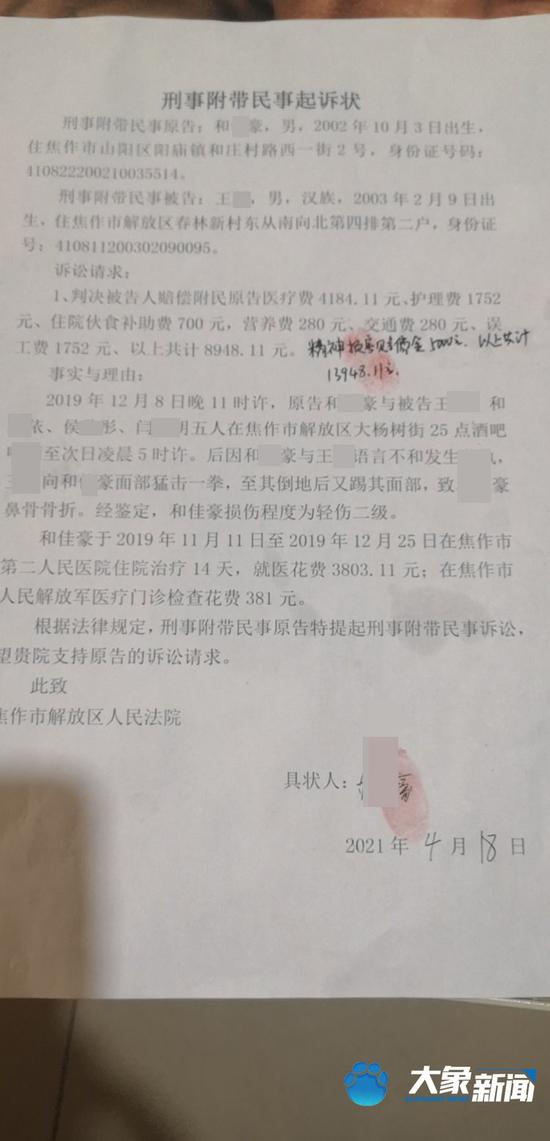 刑事附带民事起诉状
刑事附带民事原告：和 豪，男，2002年10月3日出生，
住焦作市山阳区阳庙镇和庄村路西一街2号，身份证号码：
410822200210035514。
刑事附带民事被告：王 ，男，汉族，2003年2月9日出
生，住焦作市解放区春林新村东从南向北第四排第二户，身份证
号：410811200302090095。
诉讼请求：
1、判决被告人赔偿附民原告医疗费4184.11元、护理费1752
元、住院伙食补助费700元，营养费280元、交通费280元、误
工费1752元、以上共计8948.11元。精神损害赔偿金5000元 以上共计
13948.11元.
事实与理由：
2019年12月8日晚11时许，原告和 豪与被告王 和
依、侯 彤、闫 明五人在焦作市解放区大杨树街25点酒吧
至次日凌晨5时许。后因和 豪与王 语言不和发生 ，
向和 豪面部猛击一拳，至其倒地后又踢其面部，致 豪
鼻骨骨折。经鉴定，和佳豪损伤程度为轻伤二级。
和佳豪于2019年11月11日至2019年12月25日在焦作市
第二人民医院住院治疗14天，就医花费3803.11元；在焦作市
人民解放军医疗门诊检查花费381元。
根据法律规定，刑事附带民事原告特提起刑事附带民事诉讼，
望贵院支持原告的诉讼请求。
此致
焦作市解放区人民法院
具状人： 豪
2021年4月18日
大象新闻